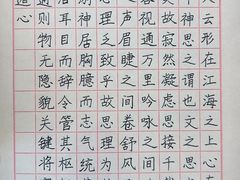 云形在江海之上心
神思之谓也文之思
故寂然凝虑思接千
视通万里吟咏之间
声眉睫之前卷舒风
理之致乎故思理为
神居胸臆而志气统
耳目而辞令管其枢
则物无隐貌关键将
心